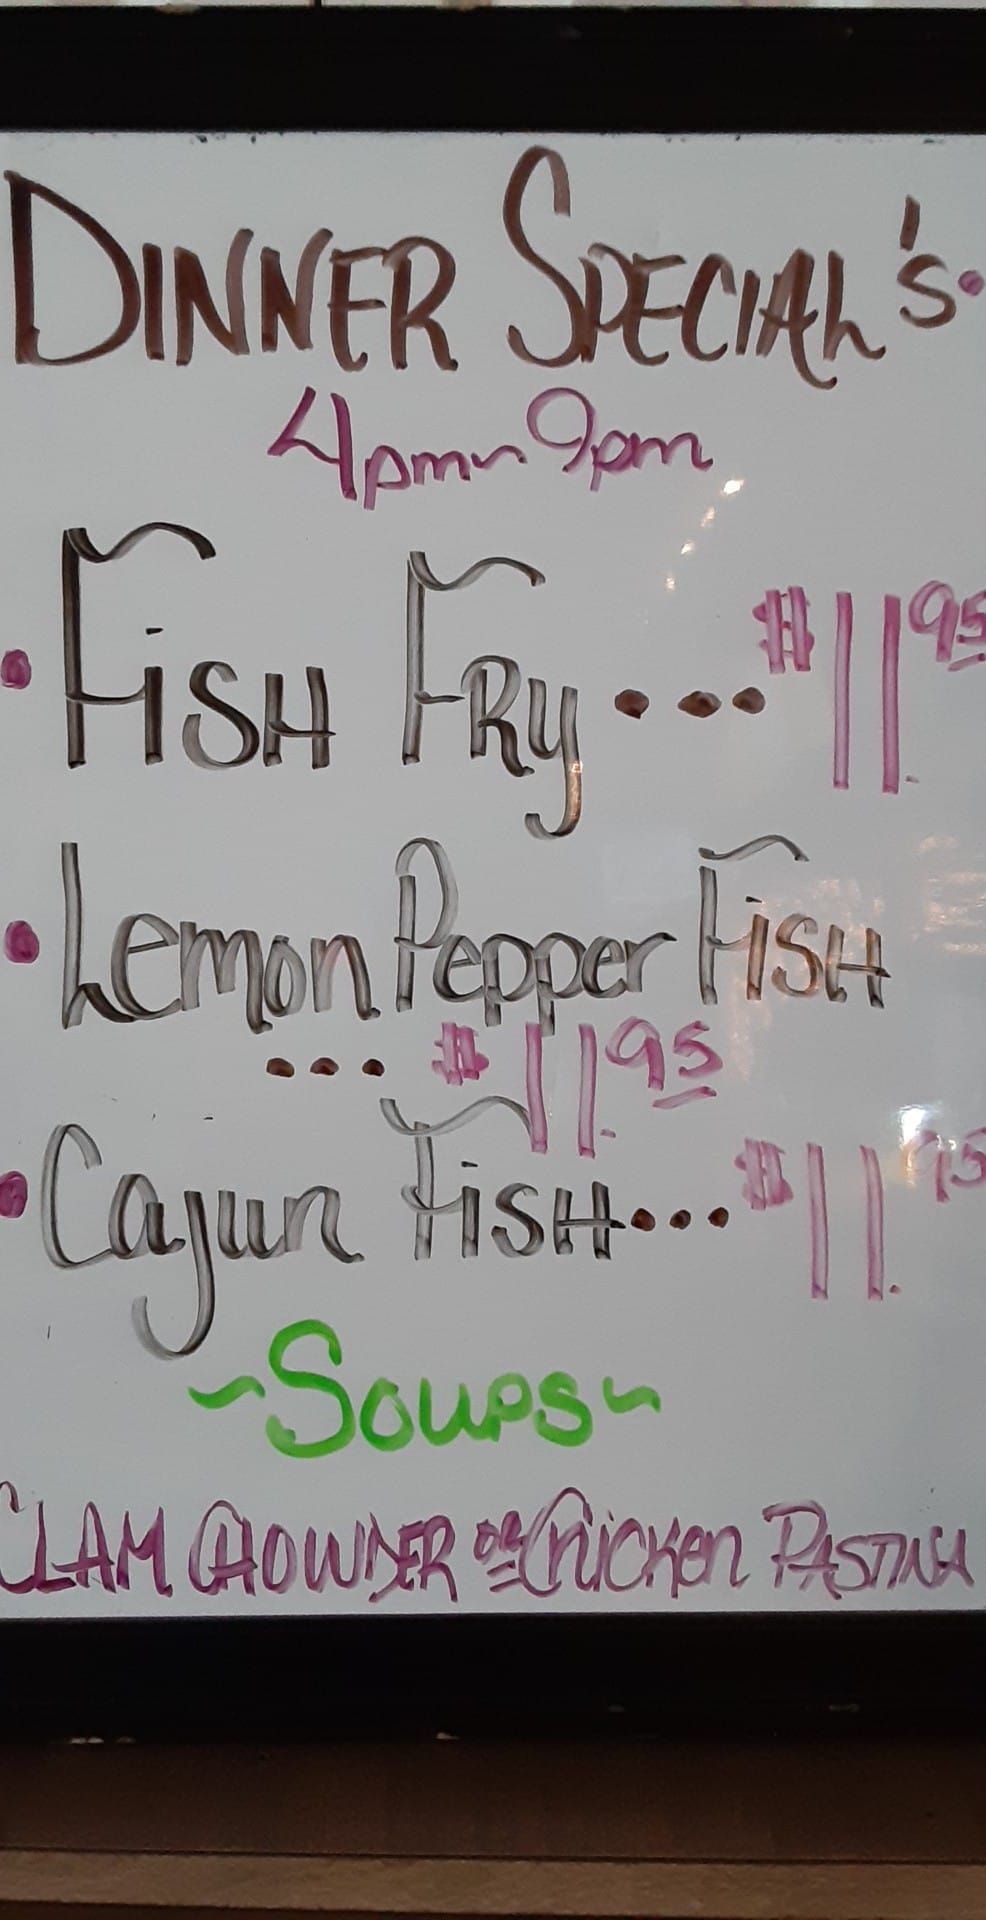 DINNER SPECIAL'S
4pm~9pm
• FISH FRY... $11.95
• Lemon Pepper FISH
... $11.95
• Cajun FISH... $11.95
~SOUPS~
CLAM CHOWDER OR CHICKEN PASTINA